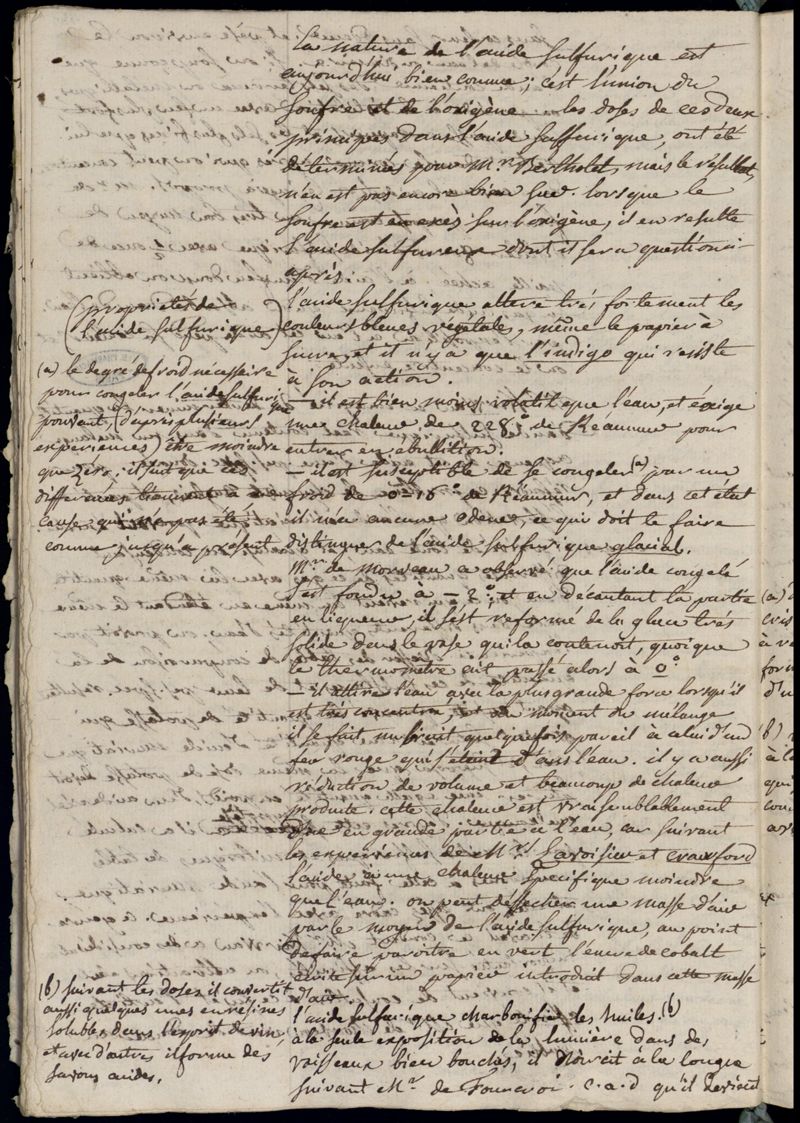 La nature de l'acide sulfurique est
aujourd'hui bien connue; c'est l'union du
soufre et de l'oxigène.. les doses de ces deux
principes dans l'acide sulfurique, ont été
déterminés pour Mr. Bertholet, mais le résultat,
n'en est pas encore bien sur. lorsque le
soufre est en excès sur l'oxigène, il en resulte
l'acide sulfureux dont il sera question ci-
après.
(proprietés de
l'acide sulfurique)
l'acide sulfurique altere très fortement les
couleurs bleues végétales, même le papier à
sucre, et il n'y a que l'indigo qui resiste
à son action.
— il est bien moins volatil que l'eau, et éxige
une chaleur de 228° de Réaumur pour
entrer en ébullition.
— il est susceptible de se congeler (a) par un
froid de 0–16° de Réaumur, et dans cet état
il n'a aucune odeur, ce qui doit le faire
distinguer de l'acide sulfurique glacial.
(a) le degré de froid nécessaire
pour congeler l'acide sulfuri
pourtant, (d'après plusieurs
expériences) être moindre
que zéro; il faut que ces
différences tiennent à
cause qui n'a pas été
connue jusqu'à présent
Mr. de Morveau a observé que l'acide congelé
s'est fondu à – 2°, et en décantant la partie
en liqueur, il s'est reformé de la glace très
solide dans le vase qui la contenoit, quoique
le thermomètre eut passé alors à 0°
— il attire l'eau avec la plus grande force lorsqu'il
est très concentré, et au moment du mélange
il se fait un bruit quelquefois pareil à celui d'un
feu rouge qui s'éteint dans l'eau. il y a aussi
réduction de volume et beaucoup de chaleur
produite. cette chaleur est vraisemblablement
due en grande partie à l'eau, car suivant
les expériences de Mrs. Lavoisier et Crawford
l'acide a une chaleur specifique moindre
que l'eau. on peut déssecher une masse d'air
par le moyen de l'acide sulfurique, au point
de faire paroître en vert l'encre de cobalt
écrite sur un papier introduit dans cette masse
d'air.
l'acide sulfurique charbonifie les huiles. (b)
(b) suivant les doses il convertit
aussi quelques unes en résines
solubles dans l'esprit de vin,
et avec d'autres il forme des
savons acides.
à la seule exposition de la lumière dans des
vaisseaux bien bouchés, il noircit à la longue
suivant Mr. de Fourcroi. c.a.d qu'il devient